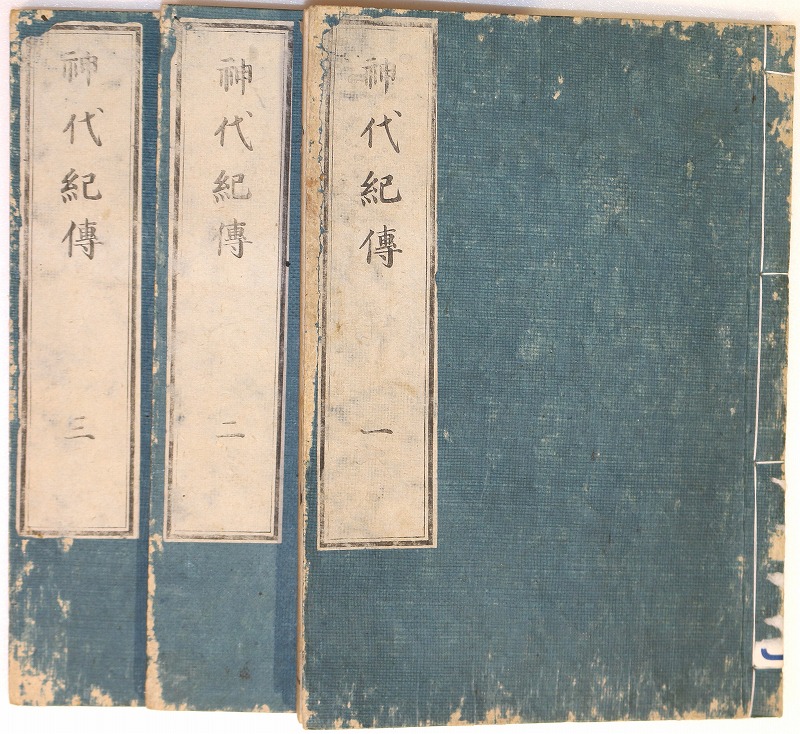 神代紀傳 一
神代紀傳 二
神代紀傳 三